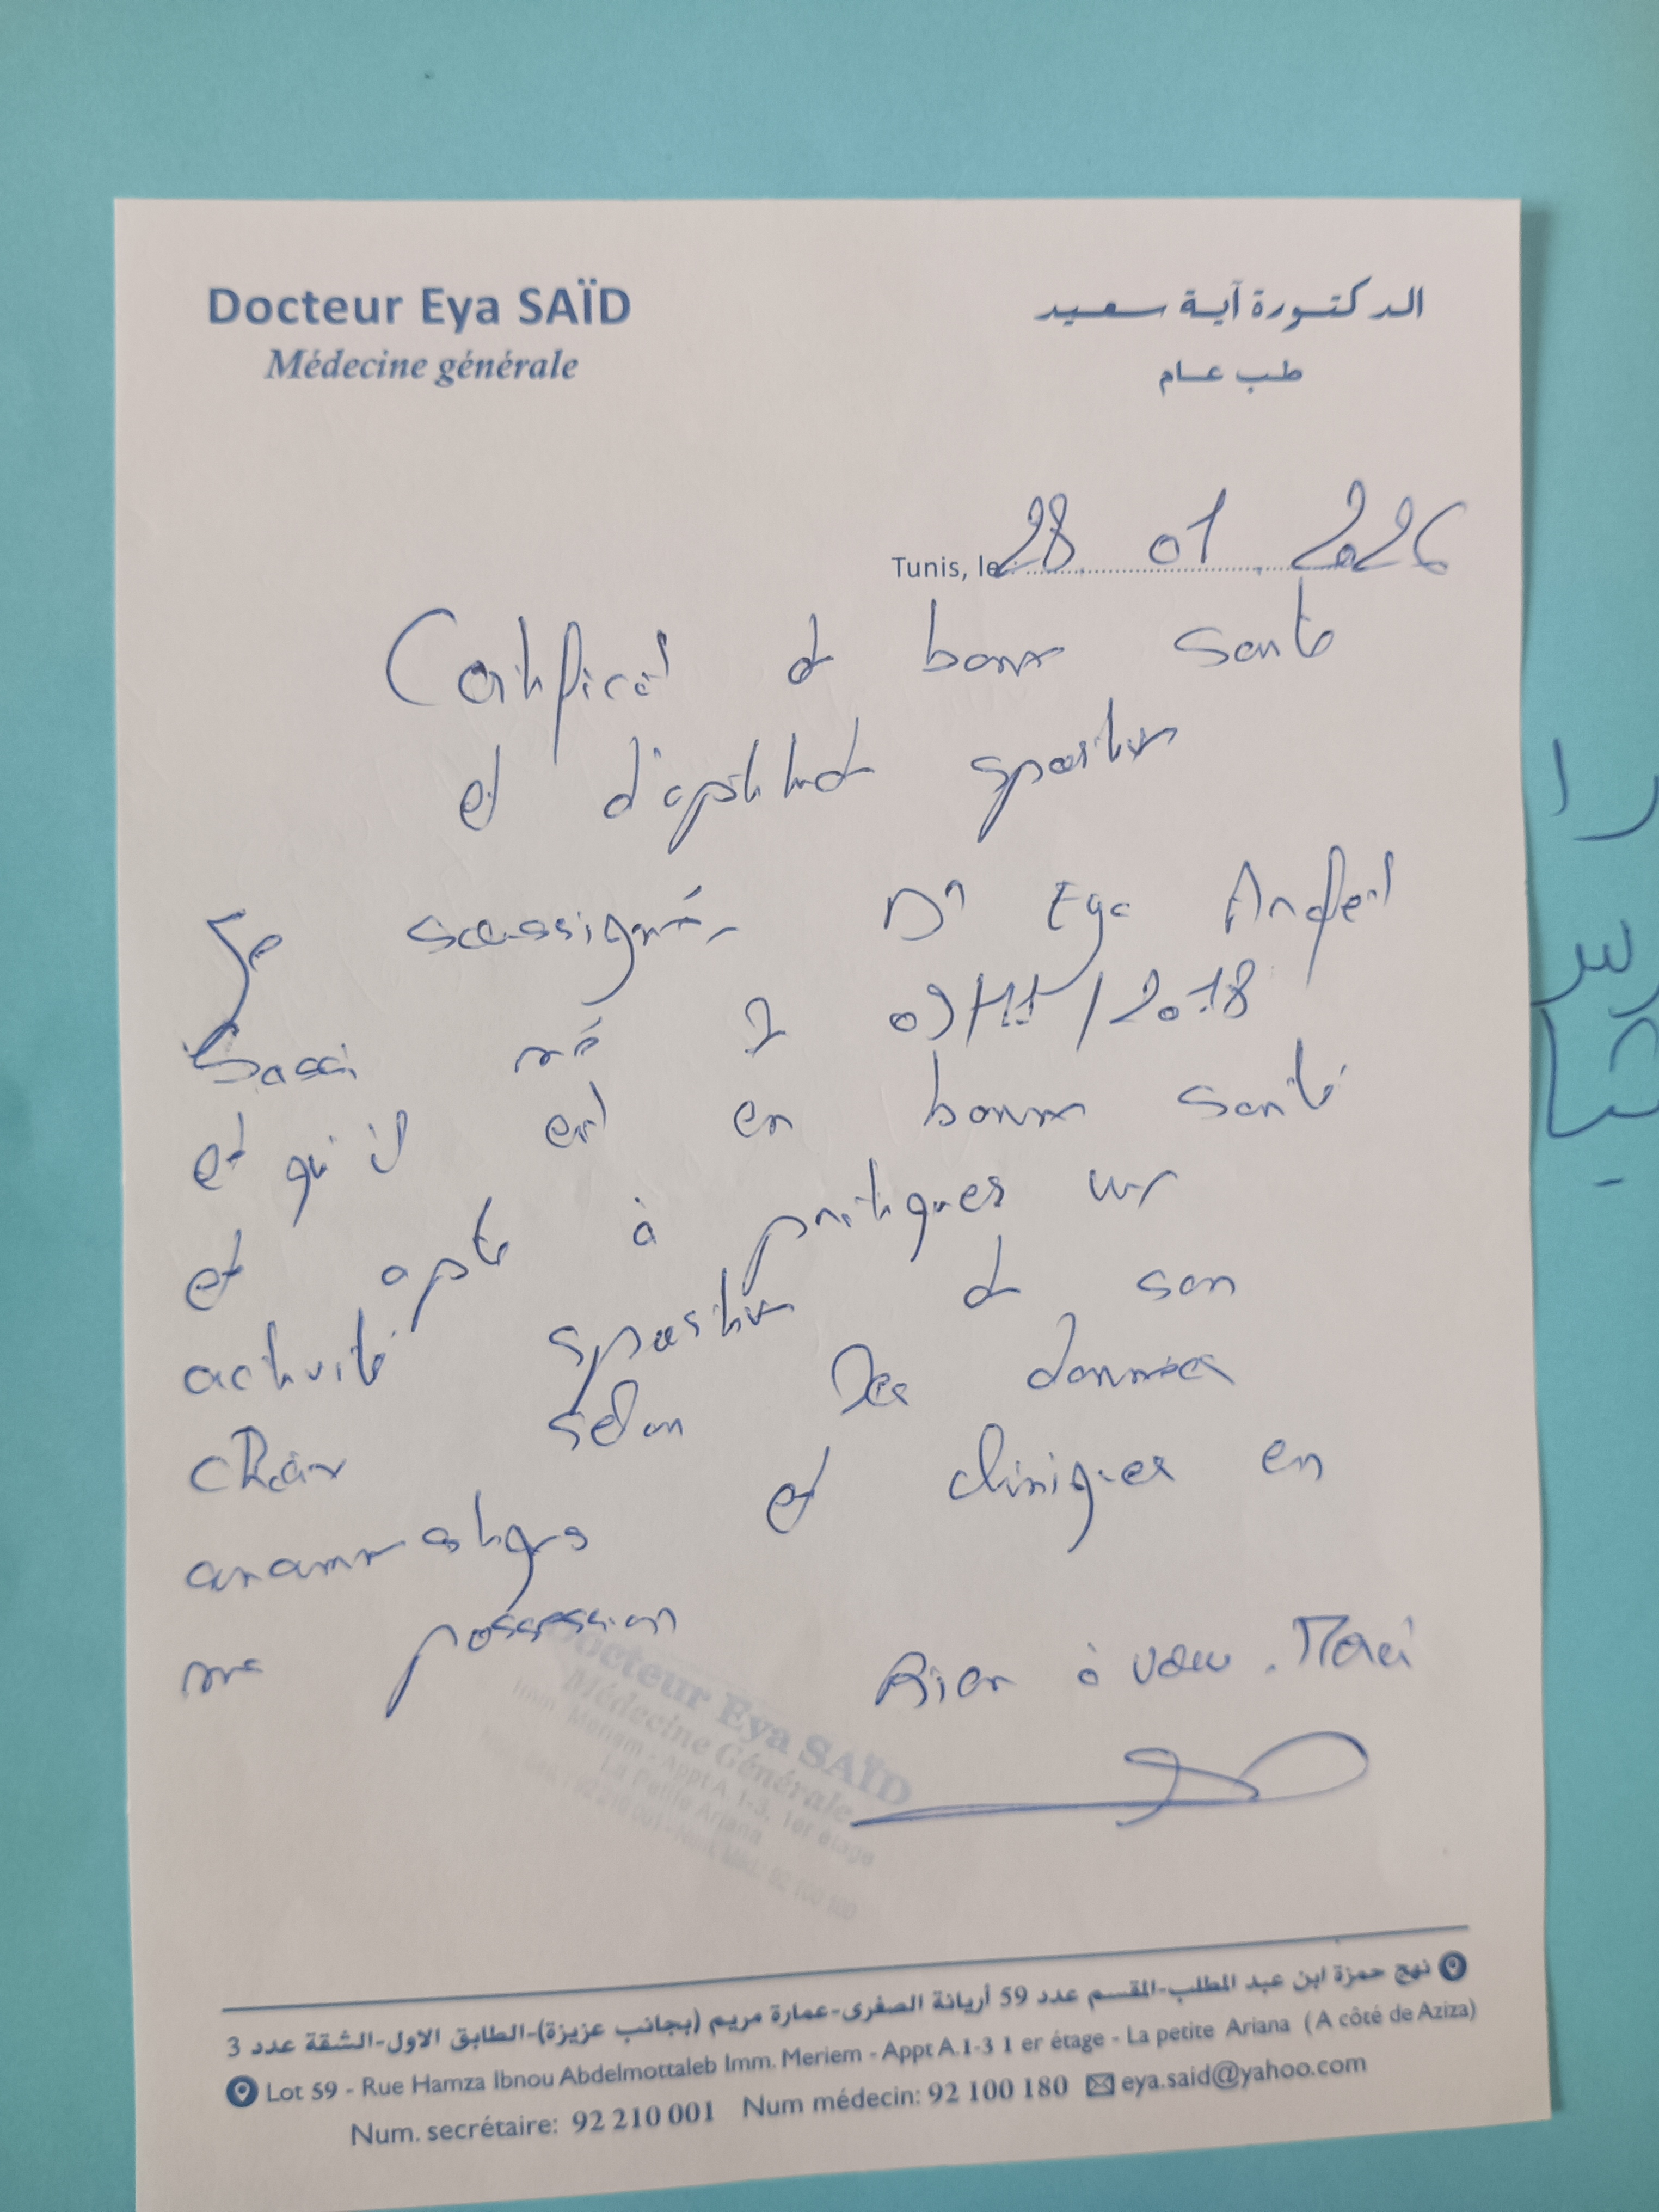 Docteur Eya SAÏD
Médecine générale
الدكتورة آية سعيد
طب عام
Tunis, le 28 01 2026
Certificat de bonne santé
et d'aptitude sportive
Je soussigné, Dr Eya
Sassi né le 09/11/2018
et qu'il est en bonne santé
et apte à pratiquer une
activité sportive de son
choix selon les données
anamnestiques et cliniques en
ma possession
Bien à vous. Merci
Docteur Eya SAÏD
Médecine Générale
Imm. Meriem - Appt A. 1-3, 1er étage
La Petite Ariana
نهج حمزة ابن عبد المطلب-المقسم عدد 59 أريانة الصغرى-عمارة مريم (بجانب عزيزة)-الطابق الاول-الشقة عدد 3
Lot 59 - Rue Hamza Ibnou Abdelmottaleb Imm. Meriem - Appt A.1-3 1 er étage - La petite Ariana (A côté de Aziza)
Num. secrétaire: 92 210 001 Num médecin: 92 100 180 eya.said@yahoo.com